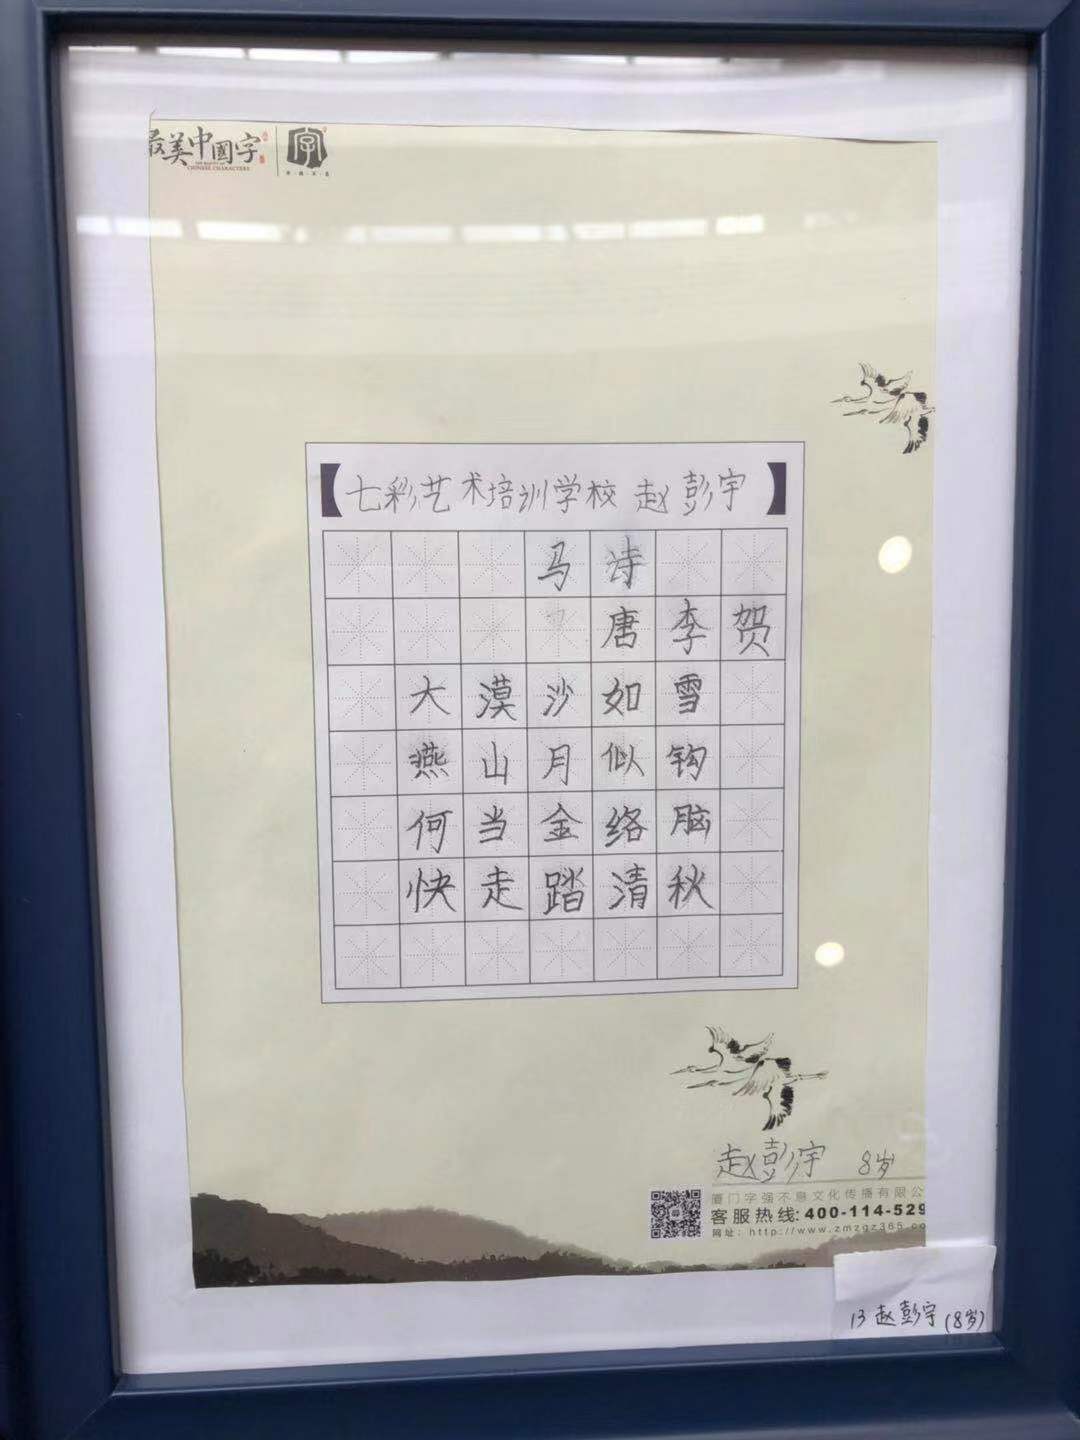 最美中國字
CHINESE CHARACTERS
字
【七彩艺术培训学校 赵彭宇】
马诗
唐李贺
大漠沙如雪
燕山月似钩
何当金络脑
快走踏清秋
赵彭宇 8岁
厦门字强不息文化传播有限公
客服热线:400-114-529
网址: http://www.zmzgz365.co
13 赵彭宇(8岁)